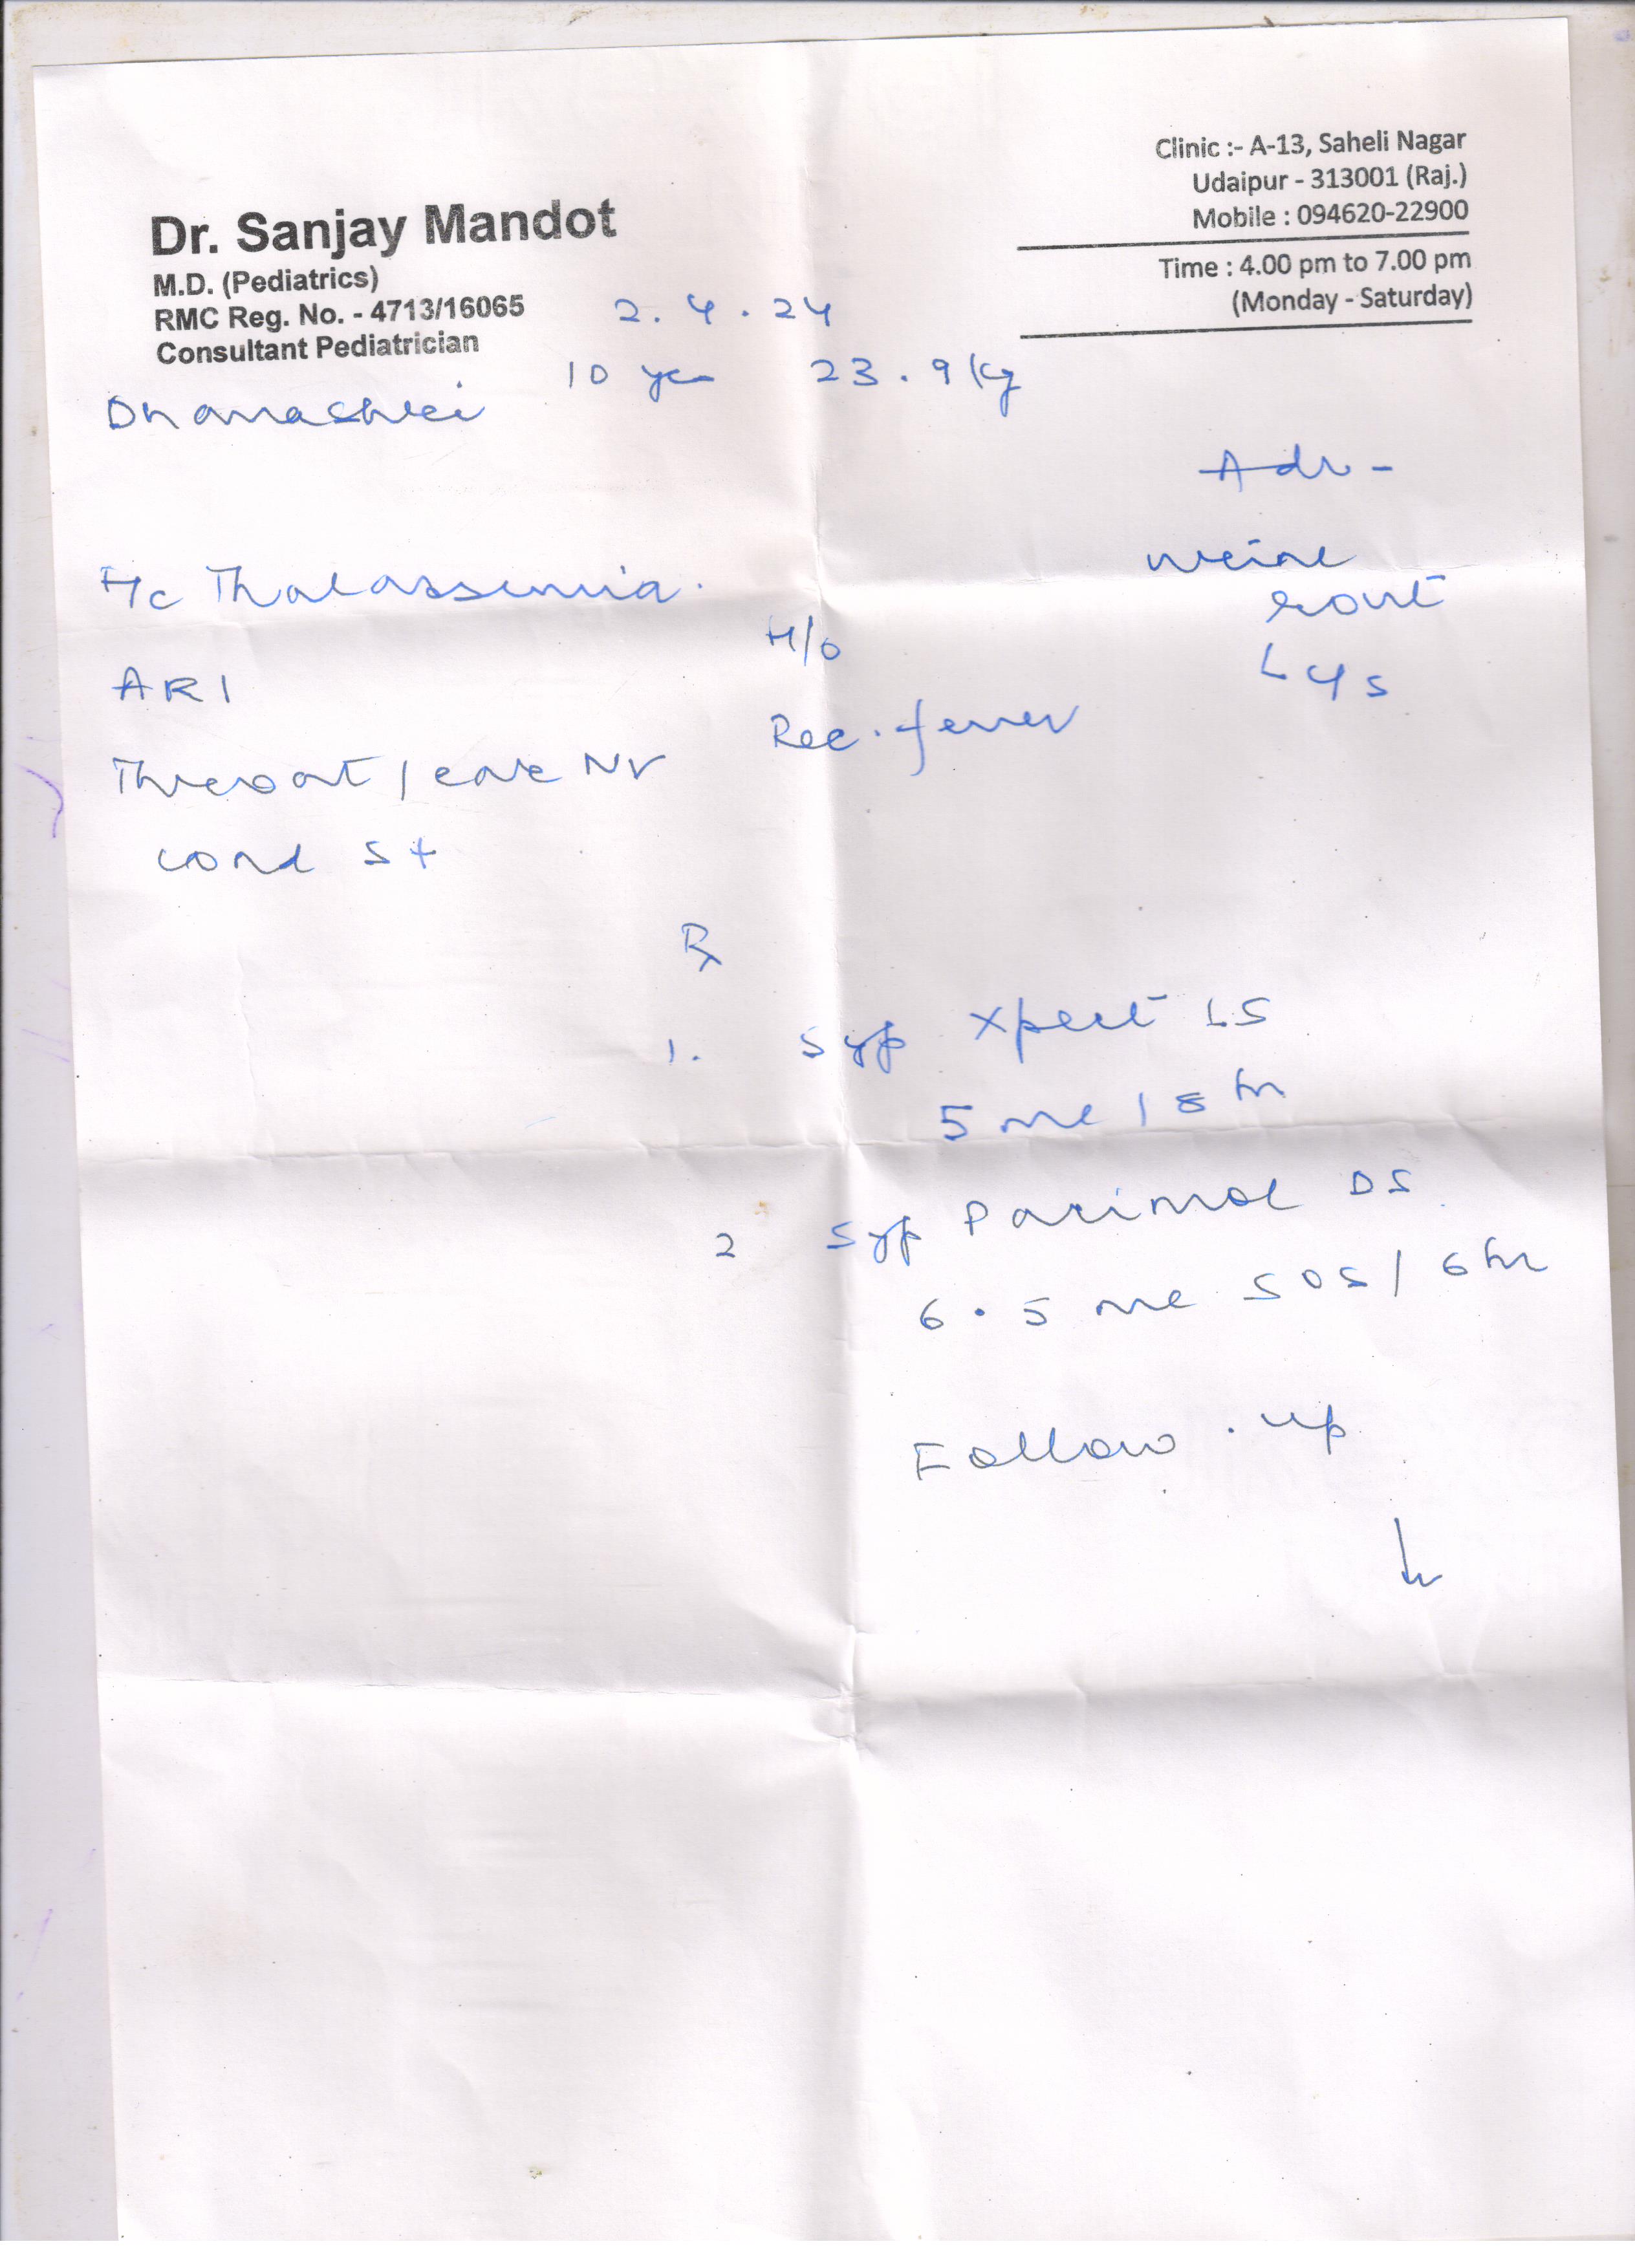 Clinic :- A-13, Saheli Nagar
Udaipur - 313001 (Raj.)
Mobile : 094620-22900
Time : 4.00 pm to 7.00 pm
(Monday - Saturday)
Dr. Sanjay Mandot
M.D. (Pediatrics)
RMC Reg. No. - 4713/16065
Consultant Pediatrician
2.4.24
10 yr 23.9 kg
Adv -
Thalassemia.
H/o
ARI
Rec. fever
Throat / ear
S+
Rx
1. Syp Xpert LS
5 ml / 8 hr
2 Syp Parimol DS
6.5 ml SOS / 6 hr
Follow.up